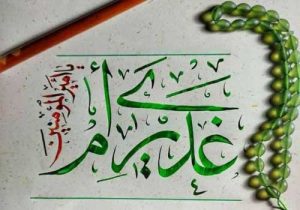 غدیری‌ام
یا امیرالمومنین